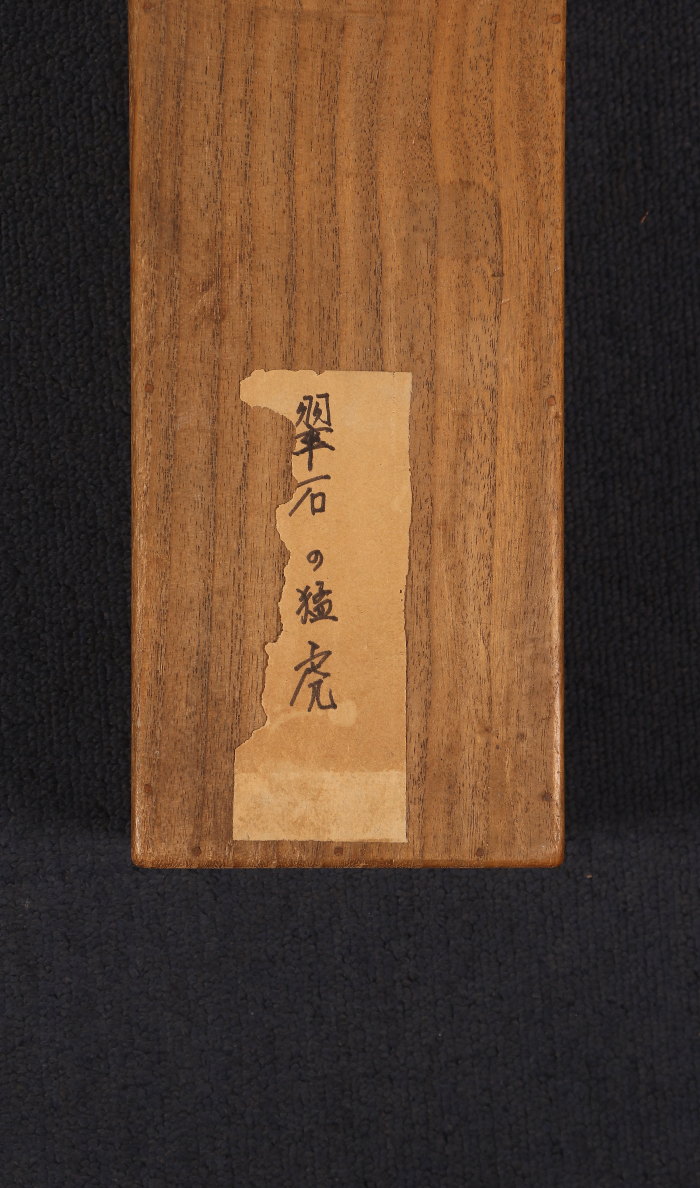 翠石の猛虎